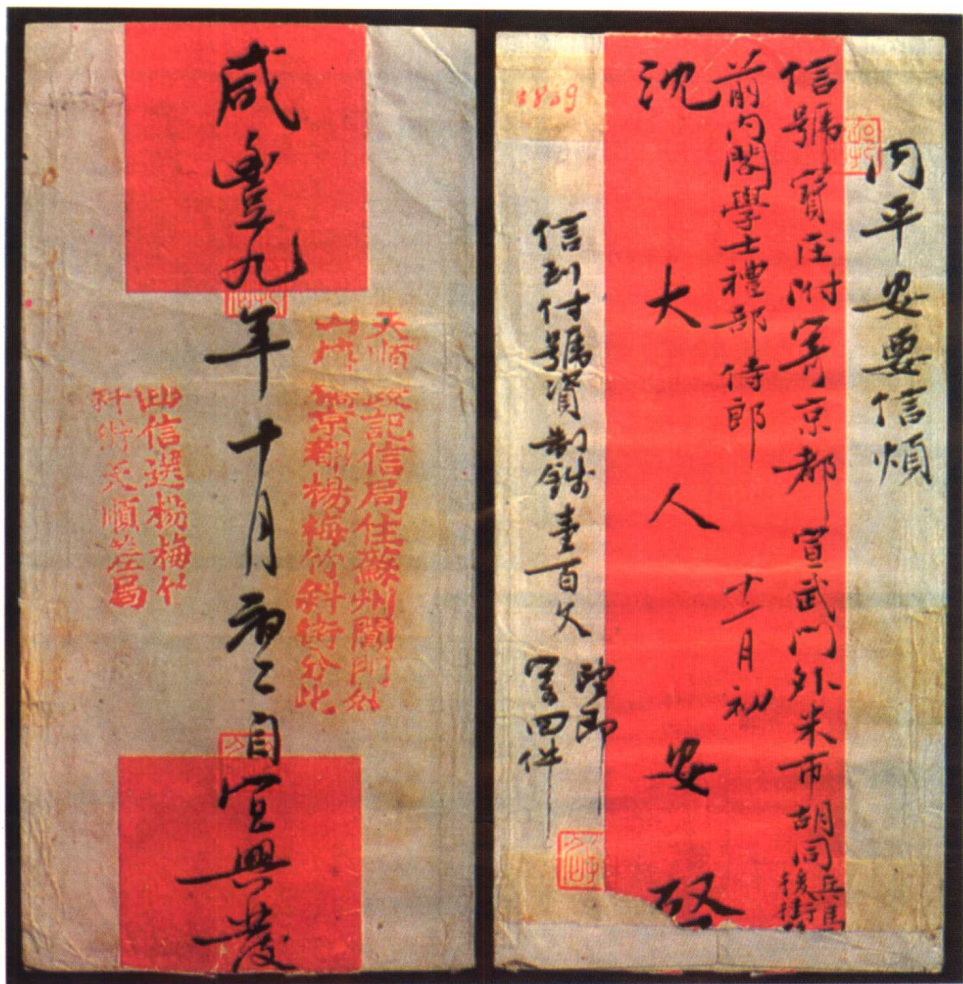 咸豐九年十月初二自宜興發
天順
山塘
政記信局住蘇州閶門外
京都楊梅竹斜街分此
此信選楊梅竹
斜街天順左局
同平安要信煩
信號寶庄附寄京都宣武門外米市胡同兵馬
後街
前內閣學士禮部侍郎 十一月初
沈大人安啓
1859
信到付號資制錢壹百文
四件